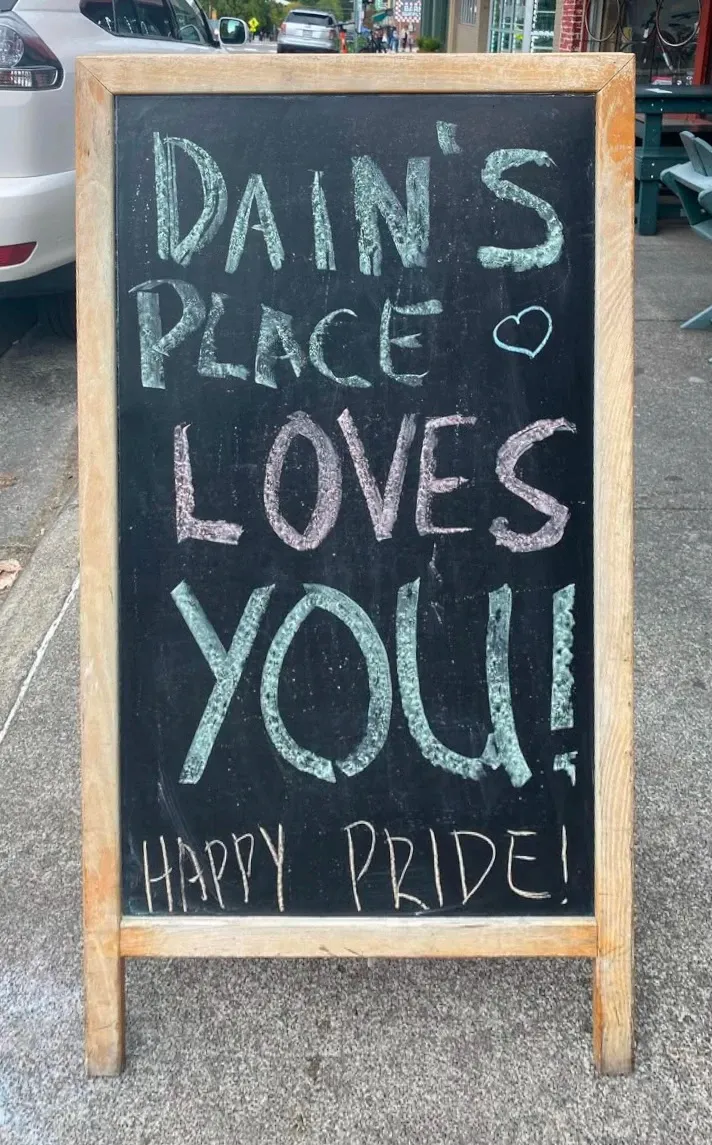 DAIN'S
PLACE ♡
LOVES
YOU!
HAPPY PRIDE!